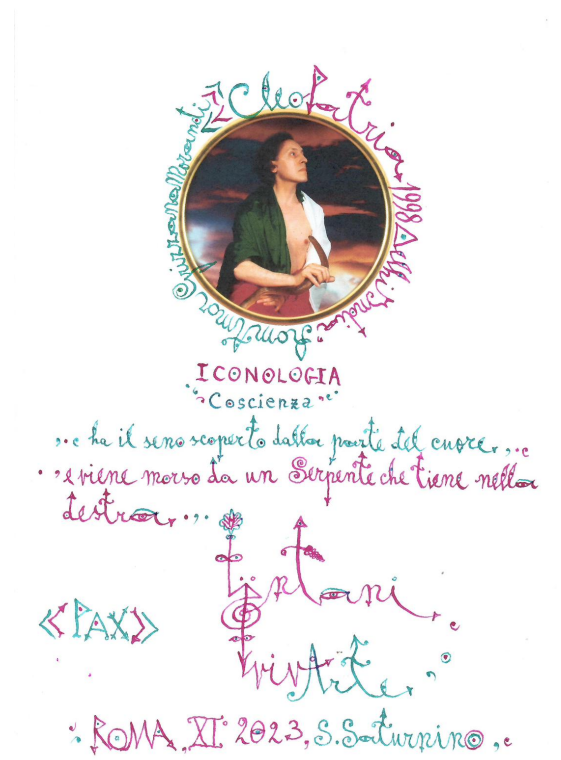 CleoPatria 1998 Delhi India
from Amor
ICONOLOGIA
Coscienza
e ha il seno scoperto dalla parte del cuore,
e viene morso da un Serpente che tiene nella
destra,
Lüntani
<<PAX>>
vivArte,
ROMA, XI° 2023, S. Saturnino,